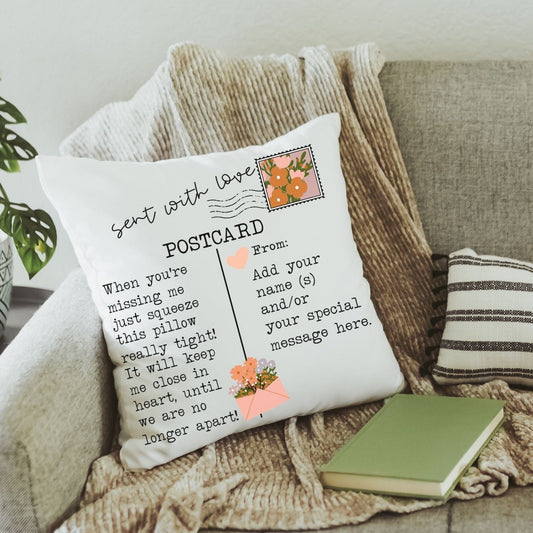 sent with love
POSTCARD
When you're
missing me
just squeeze
this pillow
really tight!
It will keep
me close in
heart, until
we are no
longer apart!
From:
Add your
name (s)
and/or
your special
message here.